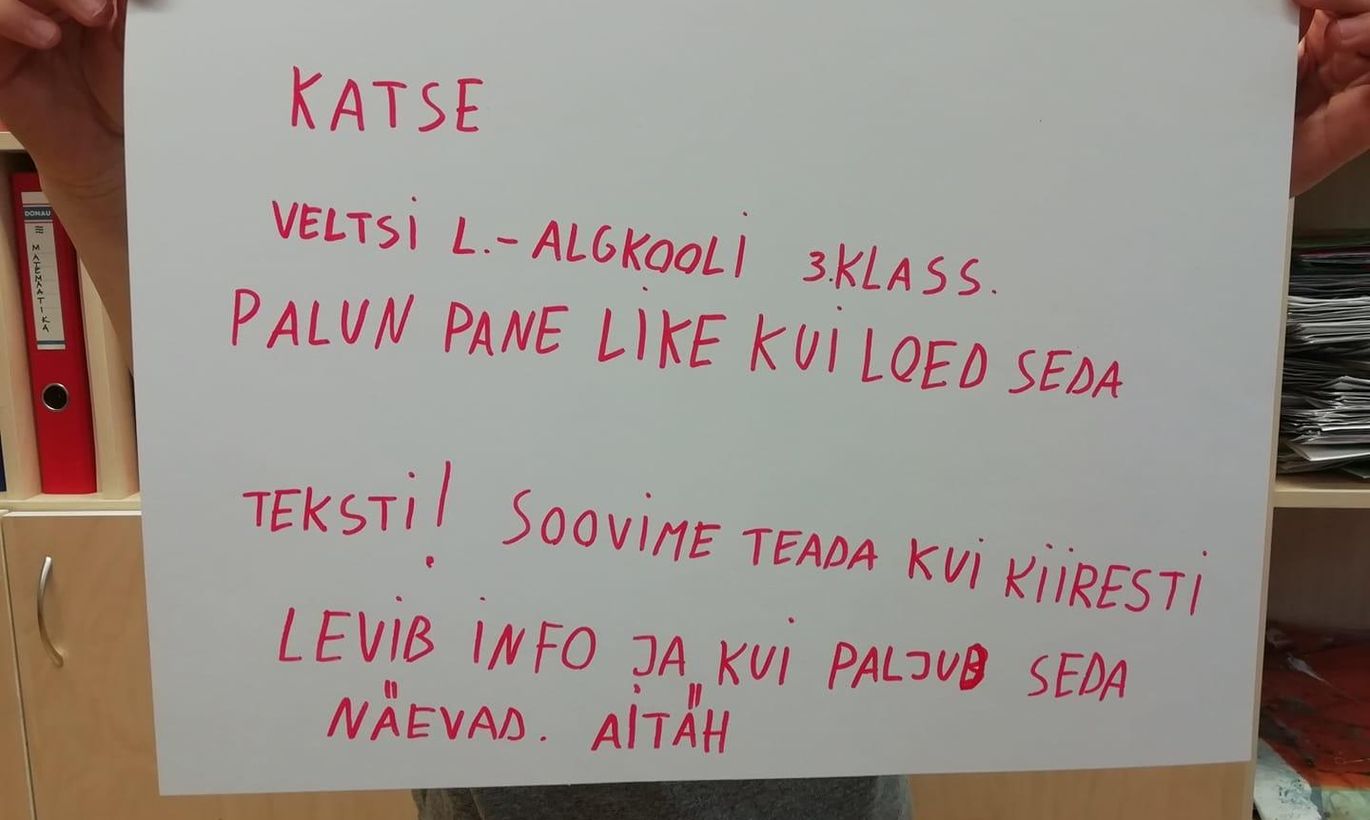 KATSE
VELTSi L.-ALGKOOLI 3.KLASS.
PALUN PANE LiKE KUi LOED SEDA
TEKSTi! SOOViME TEADA KUi KiiRESTi
LEViB iNFO JA KUi PALJUD SEDA
NÄEVAD. AiTÄH
DONAU
MATEMAATIKA